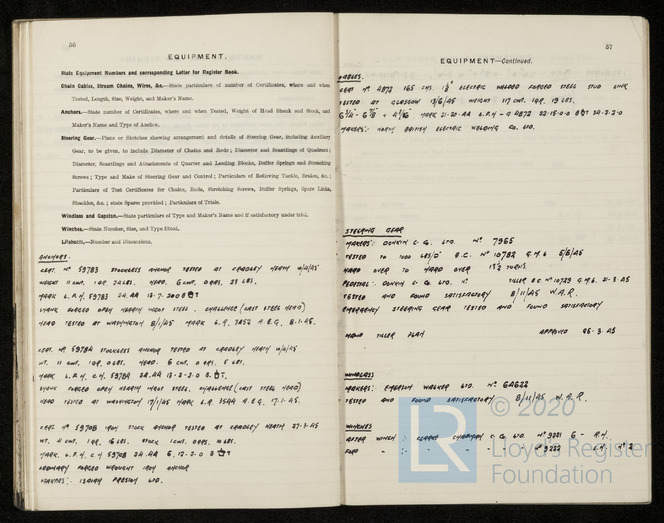 56
EQUIPMENT.
State Equipment Numbers and corresponding Letter for Register Book.
Chain Cables, Stream Chains, Wires, &c.—State particulars of number of Certificates, where and when
Tested, Length, Size, Weight, and Maker's Name.
Anchors.—State number of Certificates, where and when Tested, Weight of Head Shank and Stock, and
Maker's Name and Type of Anchor.
Steering Gear.—Plans or Sketches shewing arrangement and details of Steering Gear, including Auxiliary
Gear, to be given, to include Diameter of Chains and Rods; Diameter and Scantlings of Quadrant;
Diameter, Scantlings and Attachments of Quarter and Leading Blocks, Buffer Springs and Stretching
Screws; Type and Make of Steering Gear and Control; Particulars of Relieving Tackle, Brakes, &c.;
Particulars of Test Certificates for Chains, Rods, Stretching Screws, Buffer Springs, Spare Links,
Shackles, &c.; state Spares provided; Particulars of Trials.
Windlass and Capstan.—State particulars of Type and Maker's Name and if satisfactory under trial.
Winches.—State Number, Size, and Type fitted.
Lifeboats.—Number and Dimensions.
ANCHORS.
CERT. Nº 59783 STOCKLESS ANCHOR TESTED AT CRADLEY HEATH
WEIGHT 11 CWT. 1 QR. LBS. HEAD. 6 CWT. 0 QRS. 23 LBS.
MARK L.P.H. 59783
SHANK FORGED OPEN HEARTH INGOT STEEL. CHALLENGE (CAST STEEL HEAD)
HEAD TESTED AT WASHINGTON 8/1/45 MARK L.R. 3252 A.E.G. 8.1.45.
CERT. Nº 59784 STOCKLESS ANCHOR TESTED AT CRADLEY HEATH
WT. 11 CWT. 1 QR. 0 LBS. HEAD. 6 CWT. 0 QRS. 5 LBS.
MARK L.P.H. C.H. 59784
SHANK FORGED OPEN HEARTH INGOT STEEL. CHALLENGE (CAST STEEL HEAD)
HEAD TESTED AT WASHINGTON 17/1/45 MARK L.R. 3544 A.E.G. 17.1.45.
CERT. Nº 59708 IRON STOCK ANCHOR TESTED AT CRADLEY HEATH 27.3.45
WT. 4 CWT. 1 QR. 16 LBS. STOCK 1 CWT. 0 QRS. LBS.
MARK. L.P.H. C.H 59708
ORDINARY FORGED WROUGHT IRON ANCHOR
MAKERS: ISAIAH PRESTON LTD.
57
EQUIPMENT—Continued.
CABLES.
CERT Nº 4872 165 FMS. ELECTRIC WELDED FORGED STEEL STUD LINK
TESTED AT GLASGOW 13/6/45 WEIGHT 117 CWT. 1 QR. 19 LBS.
MARK L.P.H - G 4872
MAKERS: NORTH BRITISH ELECTRIC WELDING CO. LTD.
STEERING GEAR
MAKERS: DONKIN & CO. LTD. Nº 7965
TESTED TO 1000 LBS/□" B.C. Nº 10782 G.M.G. 5/6/45
HARD OVER TO HARD OVER TURNS.
PEDESTAL: DONKIN & CO. LTD. Nº TILLER B.C. Nº 10729 G.M.G. 21-3-45
TESTED AND FOUND SATISFACTORY 8/11/45 W.A.R.
EMERGENCY STEERING GEAR TESTED AND FOUND SATISFACTORY
HAND TILLER PLAN APPROVED 26.3.45
WINDLASS
MAKERS: EMERSON WALKER LTD. Nº GA622
TESTED AND FOUND SATISFACTORY 8/11/45 W.A.R.
WINCHES
AFTER WINCH: CLARKE CHAPMAN & CO. LTD. Nº 9221 G - R.H.
FORD - : - - - - Nº 9222 L.H. Nº 2
© 2020
LR
Lloyd's Register
Foundation